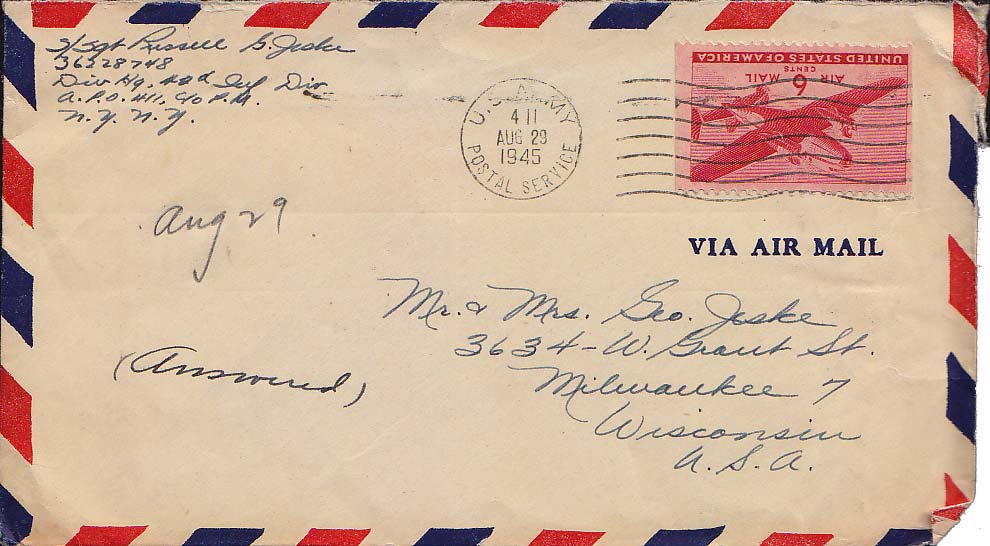 S/Sgt Russell G. Jeske
36228748
Div Hq. 42d Inf Div
A.P.O. 411, c/o P.M.
N.Y. N.Y.
U.S. ARMY
4 11
AUG 29
1945
POSTAL SERVICE
UNITED STATES OF AMERICA
CENTS
AIR MAIL
6
VIA AIR MAIL
Aug 29
Mr. & Mrs. Geo. Jeske
3634-W. Grant St.
Milwaukee 7
Wisconsin
U.S.A.
(Answered)